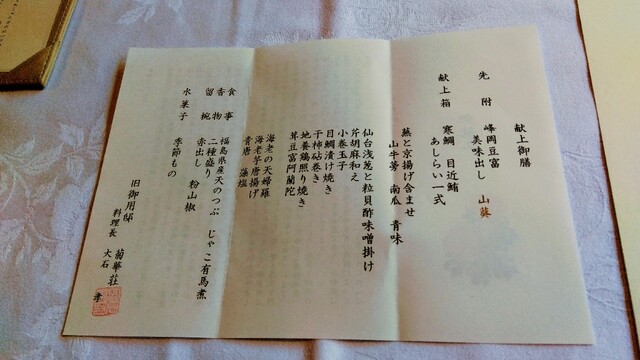 献上御膳
先附 峰岡豆富
美味出し 山葵
献上箱 寒鯛 目近鮪
あしらい一式
蕪と京揚げ含ませ
山牛蒡 南瓜 青味
仙台浅葱と粒貝酢味噌掛け
芹胡麻和え
小巻玉子
目鯛漬け焼き
干柿砧巻き
地養鶏照り焼き
茸豆富阿蘭陀
海老の天婦羅
海老芋唐揚げ
青唐 藻塩
食事 福島県産天のつぶ じゃこ有馬煮
香物 二種盛り
留椀 赤出し 粉山椒
水菓子 季節もの
旧御用邸 菊華荘
料理長 大石